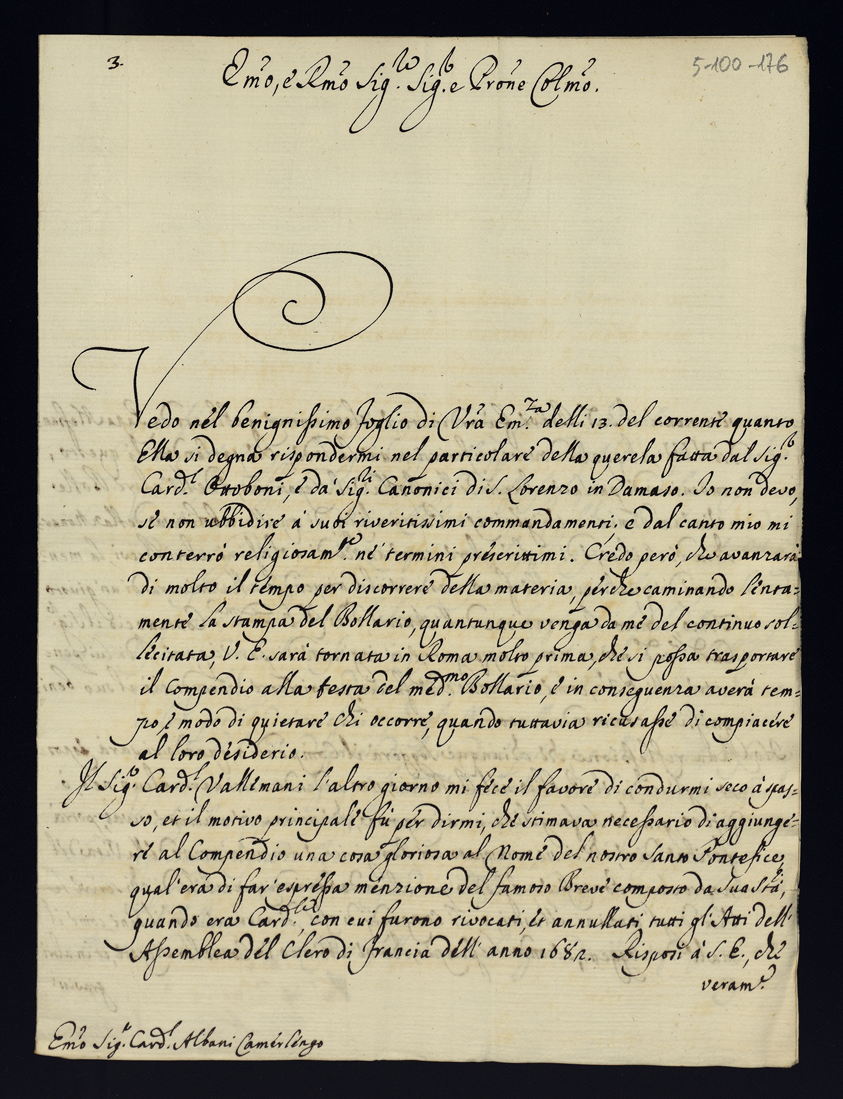 3.
5-100-176
Emo, e Rmo Sig.re Sig.r e Prone Colmo.
Vedo nel benignissimo foglio di Vra Em.za delli 13. del corrente quanto
Ella si degna rispondermi nel particolare della querela fatta dal Sig.r
Card.l Ottoboni, e da' Sig.ri Canonici di S. Lorenzo in Damaso. Io non devo,
se non ubbidire à suoi riveritissimi commandamenti, e dal canto mio mi
conterrò religiosam.te ne' termini prescrittimi. Credo però, che avanzarà
di molto il tempo per discorrere della materia, perche caminando lenta=
mente la stampa del Bollario, quantunque venga da me del continuo sol=
lecitata, V. E. sarà tornata in Roma molto prima, che si possa trasportare
il Compendio alla testa del med.mo Bollario, e in conseguenza averà tem=
po, e modo di quietare chi occorre, quando tuttavia ricusasse di compiacere
al loro desiderio.
Il Sig.r Card.l Vallemani l'altro giorno mi fece il favore di condurmi seco à spas=
so, et il motivo principale fù per dirmi, che stimava necessario di aggiunge=
re al Compendio una cosa gloriosa al Nome del nostro Santo Pontefice,
qual'era di far' espressa menzione del famoso Breve composto da Sua Stà,
quando era Card.le, con cui furono rivocati, et annullati tutti gl'Atti dell'
Assemblea del Clero di Francia dell' anno 1682. Risposi à S. E., che
veram.e
Emo Sig.r Card.l Albani Camerlengo